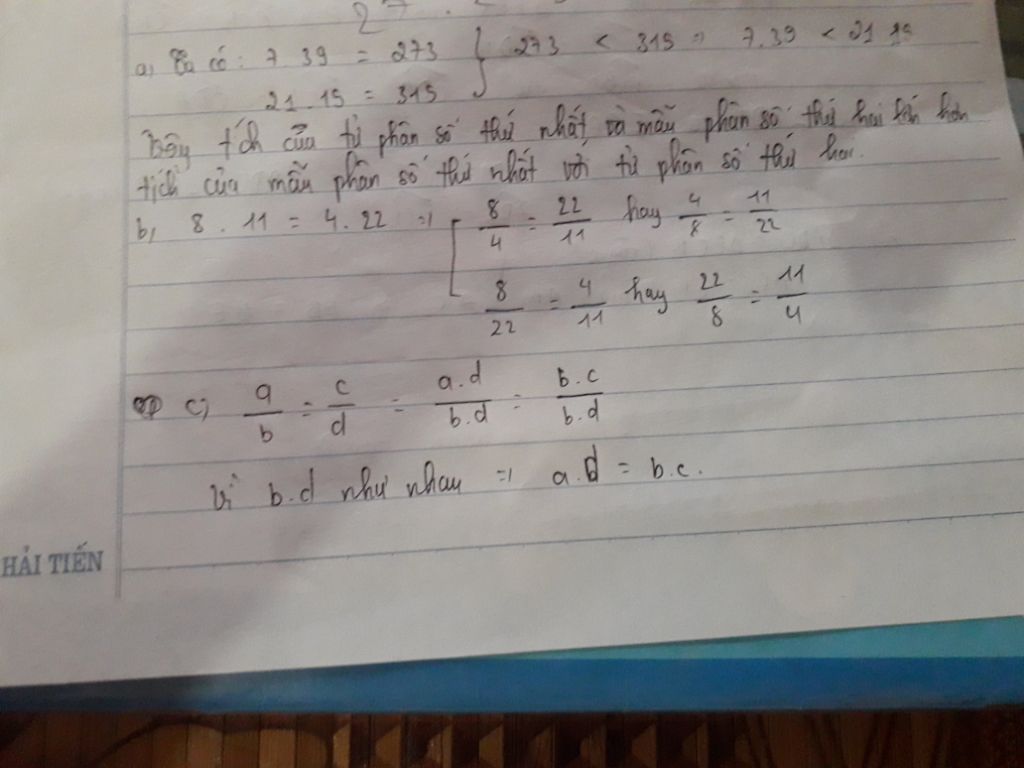 2
a, Ta có: 7.39 = 273 } 273 < 315 => 7.39 < 21.15
21.15 = 315
Vậy tích của tử phân số thứ nhất và mẫu phân số thứ hai bé hơn
tích của mẫu phân số thứ nhất với tử phân số thứ hai.
b, 8.11 = 4.22 => [ 8/4 = 22/11 hay 4/8 = 11/22
8/22 = 4/11 hay 22/8 = 11/4
c, a/b = c/d = a.d/b.d = b.c/b.d
Vì b.d như nhau => a.d = b.c.
HẢI TIẾN